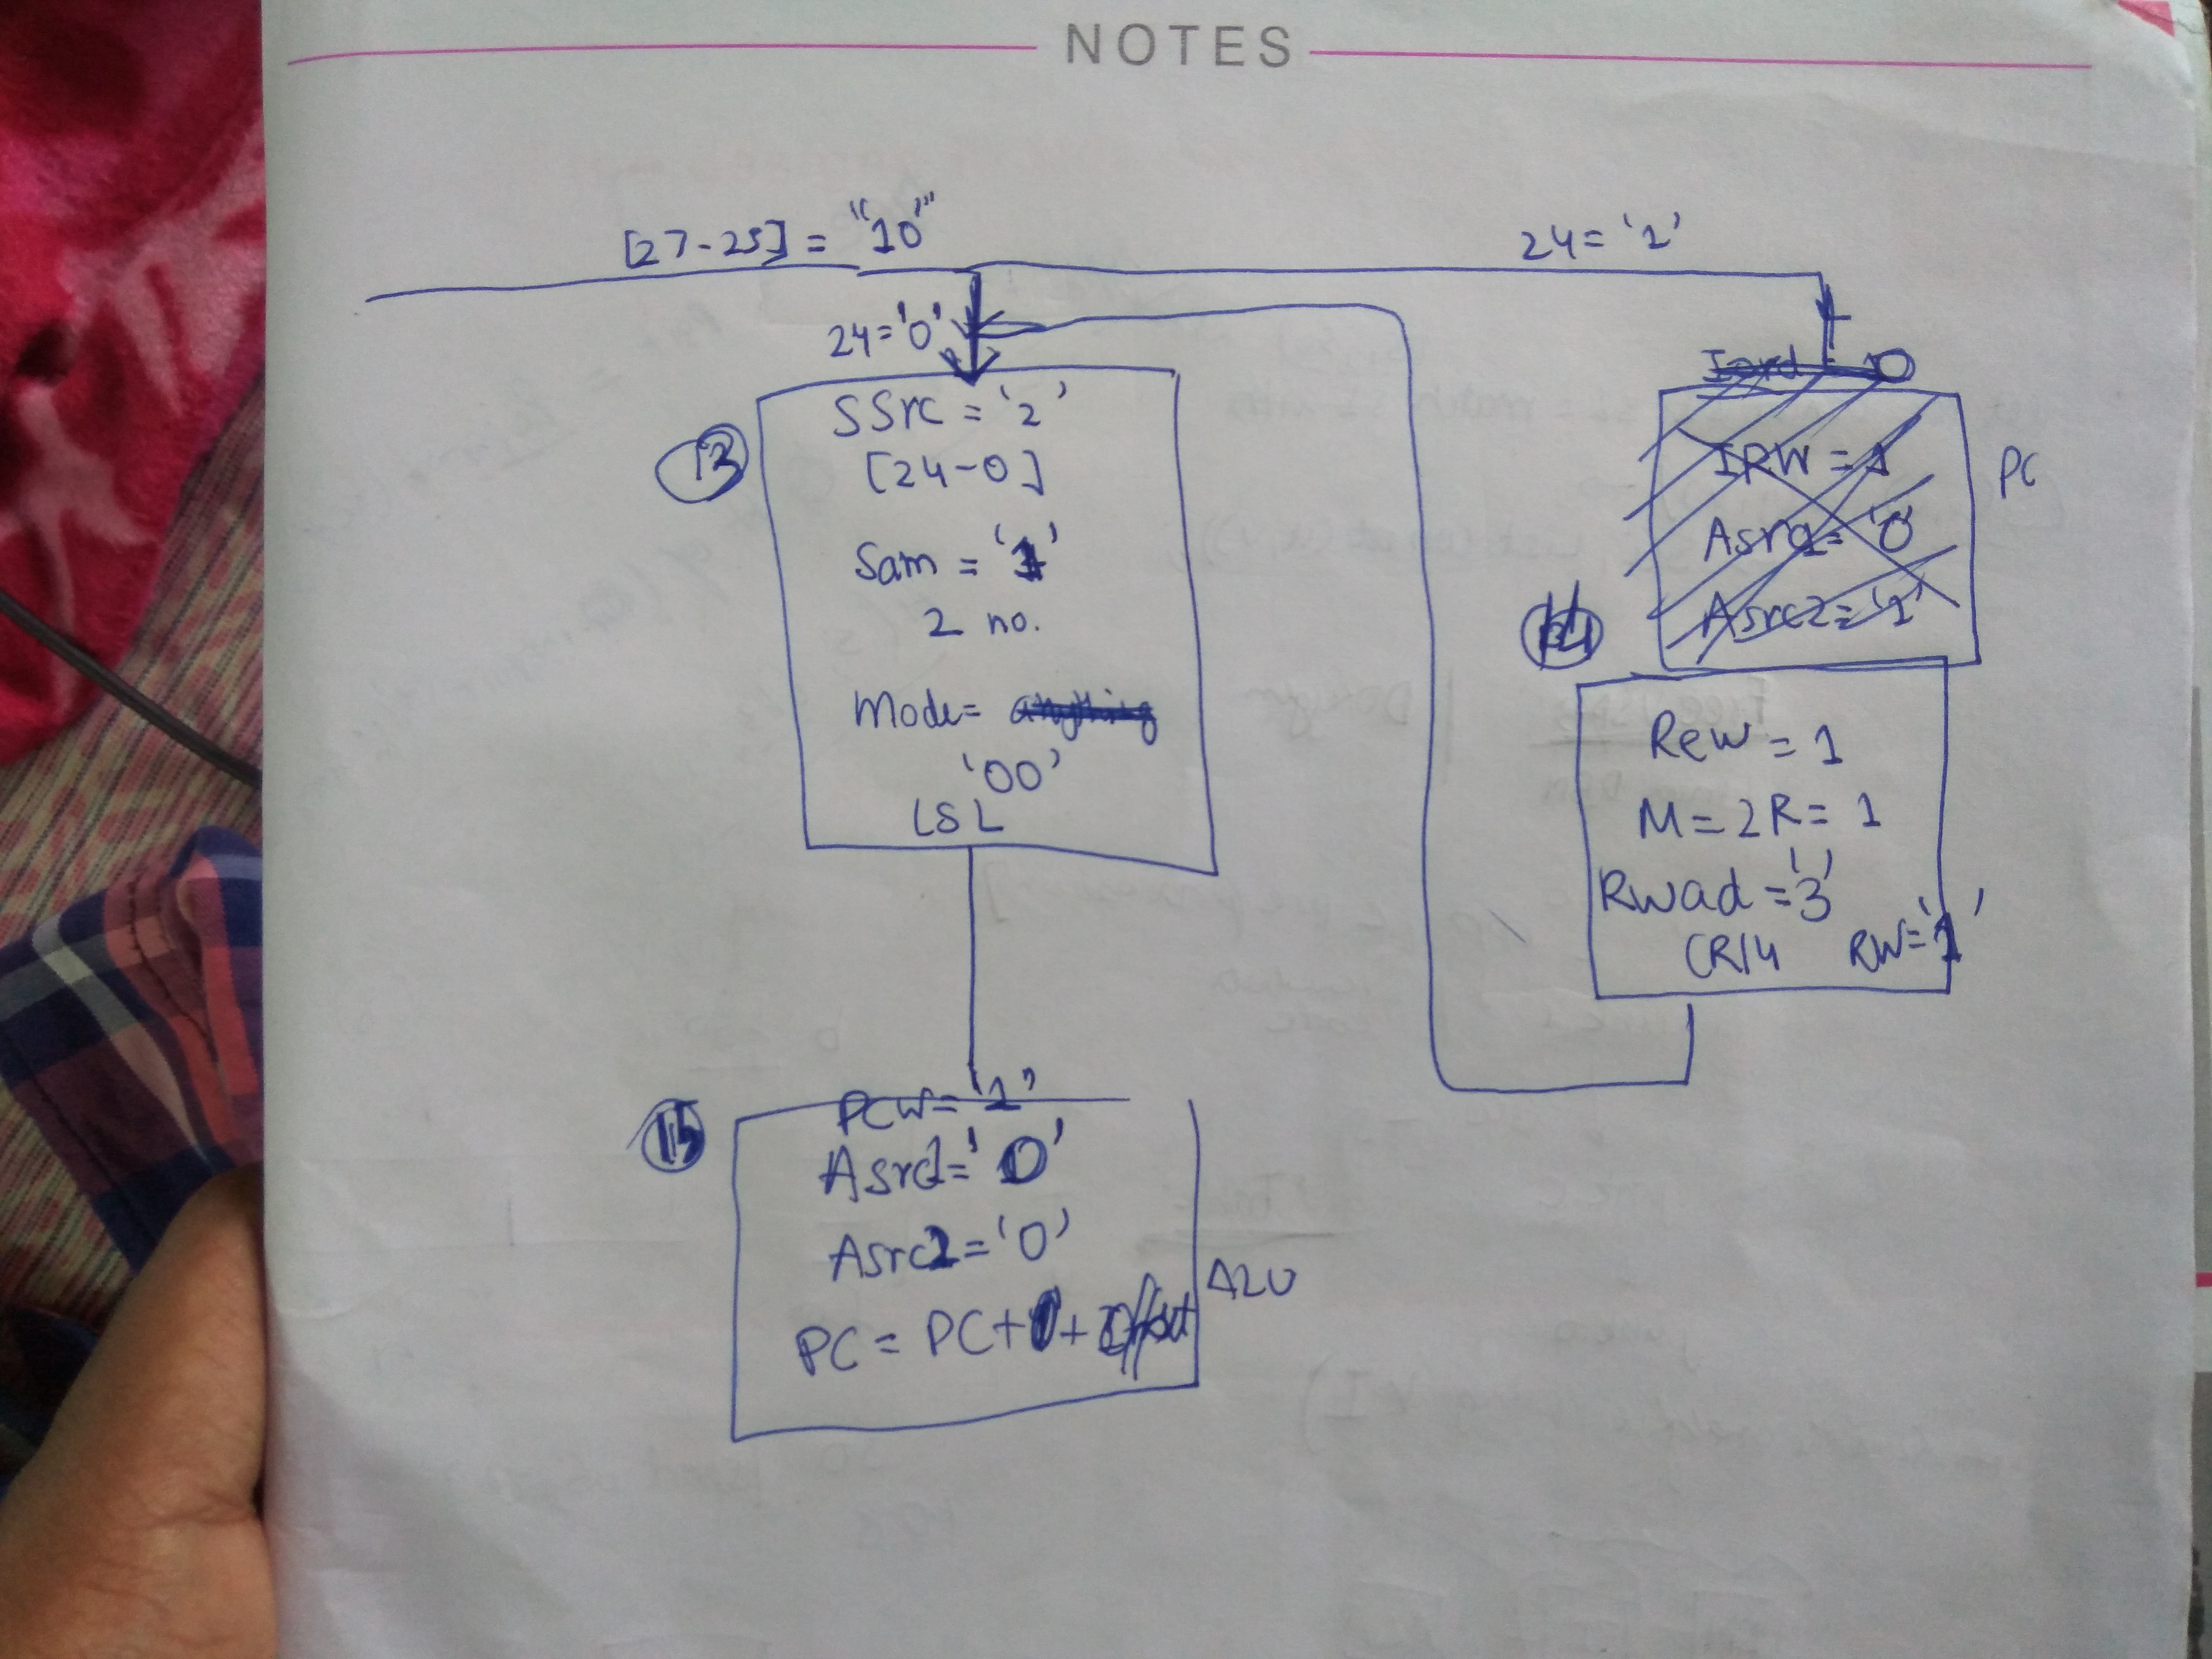 NOTES
[27-25] = "10"
24='1'
24='0'
SSrc = '2'
[24-0]
13
Sam = '1'
2 no.
Mode= anything
'00'
LSL
Iord = 0
IRW = 1
PC
Asrc1= '0'
Asrc2= '1'
14
Rew = 1
M = 2R = 1
Rwad = '3'
(R14 RW='1'
PCW= '1'
15
Asrc1= '0'
Asrc2= '0'
ALU
PC = PC+1+ Offset